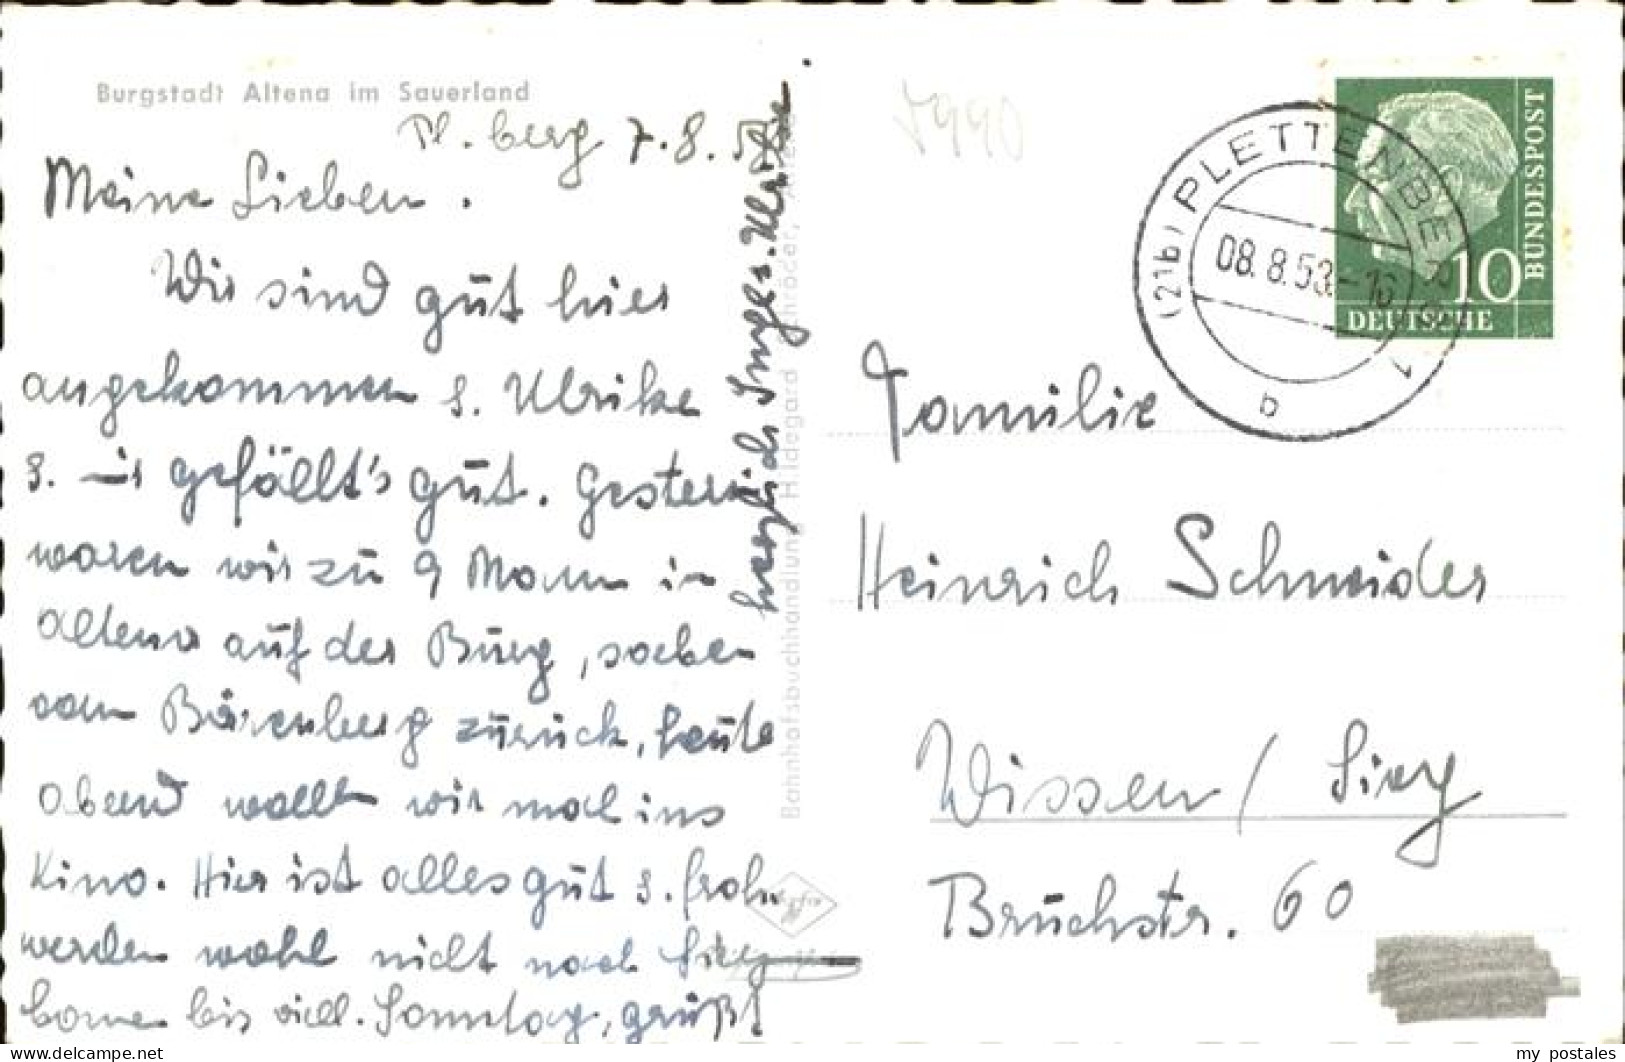 Burgstadt Altena im Sauerland
Pl. berg 7.8.
Meine Lieben.
Wir sind gut hier
angekommen u. Ulrike
u. mir gefällt's gut. Gestern
waren wir zu 9 Mann in
Altena auf der Burg, soeben
vom Bärenberg zurück, heute
abend wollen wir mal ins
Kino. Hier ist alles gut u.
werden wohl nicht nach Sieg
kommen bis viell. Sonntag, grüßt
herzlich Inge u. Ulrike
Bahnhofsbuchhandlung Hildegard Schröder,
7990
(21b) PLETTENBERG 1
08.8.53.-16
b
BUNDESPOST
10
DEUTSCHE
Familie
Heinrich Schneider
Wissen / Sieg
Bruchstr. 60
my postales
www.my-postales.com